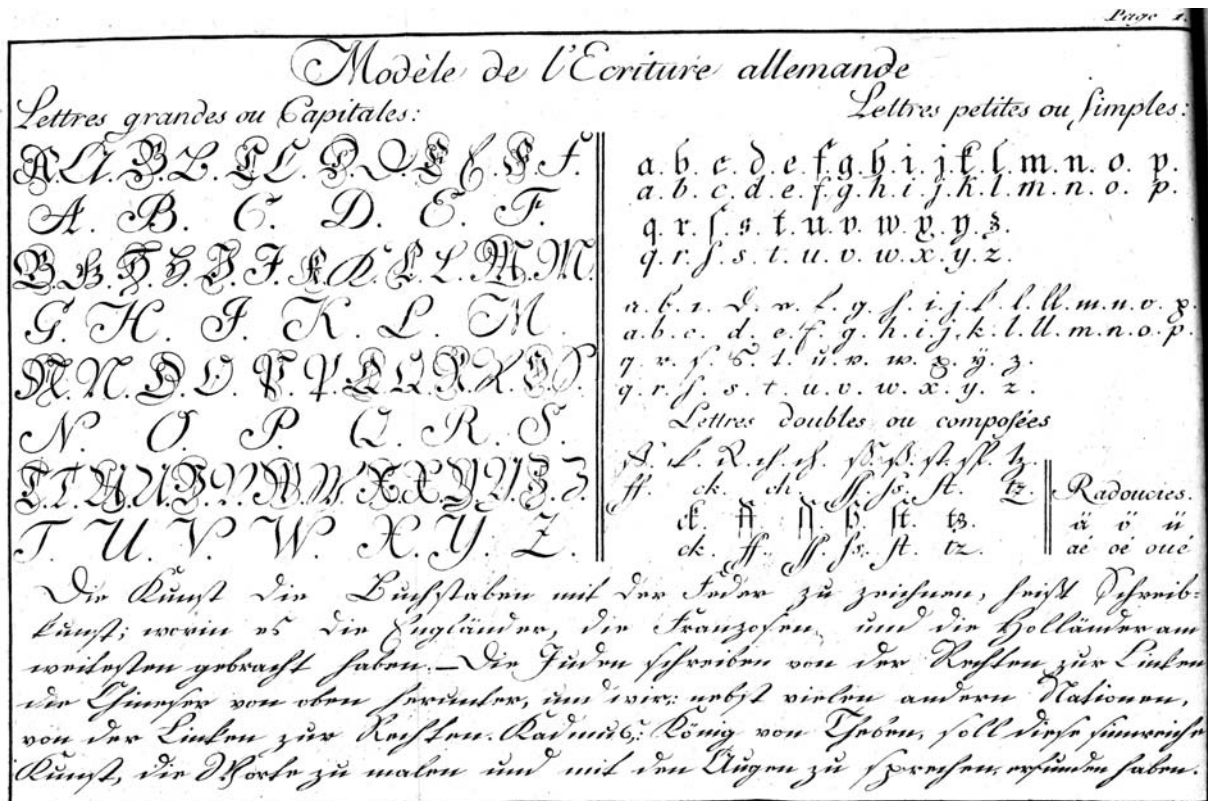 Page 1.
Modèle de l'Ecriture allemande
Lettres grandes ou Capitales:
A. A. B. B. C. C. D. D. E. E. F. F.
A. B. C. D. E. F.
G. G. H. H. I. I. K. K. L. L. M. M.
G. H. I. K. L. M.
N. N. O. O. P. P. Q. Q. R. R. S. S.
N. O. P. Q. R. S.
T. T. U. U. V. V. W. W. X. X. Y. Y. Z. Z
T. U. V. W. X. Y. Z.
Lettres petites ou ſimples:
a. b. c. d. e. f. g. h. i. j. k. l. m. n. o. p.
a. b. c. d. e. f. g. h. i. j. k. l. m. n. o. p.
q. r. ſ. s. t. u. v. w. x. y. z.
q. r. ſ. s. t. u. v. w. x. y. z.
a. b. c. d. e. f. g. h. i. j. k. l. ll. m. n. o. p.
a. b. c. d. e. f. g. h. i. j. k. l. ll. m. n. o. p.
q. r. ſ. s. t. u. v. w. x. ÿ. z.
q. r. ſ. s. t. u. v. w. x. y. z.
Lettres doubles ou compoſées
ff. ck. ch. ſſ. ſs. ſt. tz.
ck. ff. ſſ. ß. ſt. tz.
ck. ff. ſſ. ſs. ſt. tz.
Radoucies.
ä ö ü
aé oé oué
Die Kunst die Buchstaben mit der Feder zu zeichnen, heißt Schreib=
kunst; worin es die Engländer, die Franzosen, und die Holländer am
weitesten gebracht haben. — Die Juden schreiben von der Rechten zur Linken
die Chineser von oben herunter, und wir, nebst vielen andern Nationen,
von der Linken zur Rechten. Kadmus, König von Theben, soll diese sinnreiche
Kunst, die Worte zu malen und mit den Augen zu sprechen, erfunden haben.